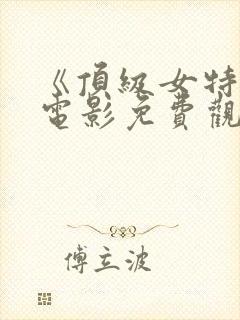 《頂級女特
電影免費觀
傅立波